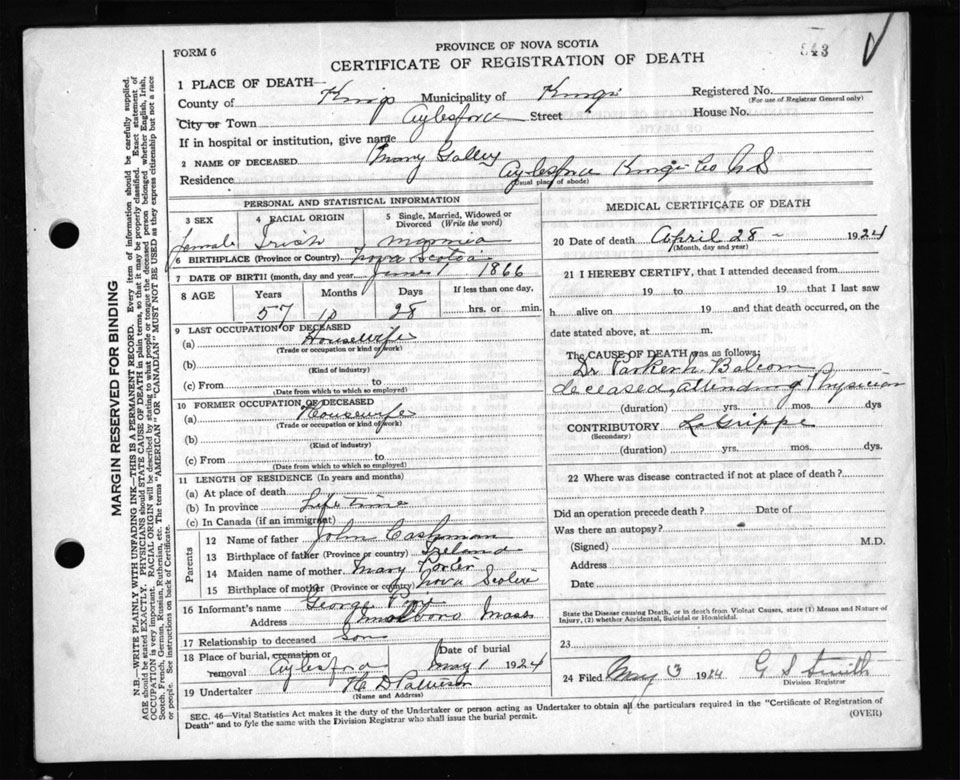 FORM 6
PROVINCE OF NOVA SCOTIA
CERTIFICATE OF REGISTRATION OF DEATH
543
1 PLACE OF DEATH
County of Kings Municipality of Kings Registered No.
(For use of Registrar General only)
City or Town Aylesford Street House No.
If in hospital or institution, give name
2 NAME OF DECEASED Mary
Residence Aylesford Kings Co N S
(Usual place of abode)
PERSONAL AND STATISTICAL INFORMATION
3 SEX 4 RACIAL ORIGIN 5 Single, Married, Widowed or Divorced (Write the word)
female Irish Married
6 BIRTHPLACE (Province or Country) Nova Scotia
7 DATE OF BIRTH (month, day and year) June 1 1866
8 AGE Years Months Days If less than one day,
57 10 28 hrs. or min.
9 LAST OCCUPATION OF DECEASED
(a) Housewife
(Trade or occupation or kind of work)
(b)
(Kind of industry)
(c) From to
(Date from which to which so employed)
10 FORMER OCCUPATION OF DECEASED
(a) Housewife
(Trade or occupation or kind of work)
(b)
(Kind of industry)
(c) From to
(Date from which to which so employed)
11 LENGTH OF RESIDENCE (In years and months)
(a) At place of death
(b) In province Life time
(c) In Canada (if an immigrant)
Parents
12 Name of father John Cashman
13 Birthplace of father (Province or country) Ireland
14 Maiden name of mother Mary
15 Birthplace of mother (Province or country) Nova Scotia
16 Informant's name George
Address Mass
17 Relationship to deceased Son
18 Place of burial, cremation or removal Aylesford Date of burial May 1 1924
19 Undertaker H D
(Name and Address)
MEDICAL CERTIFICATE OF DEATH
20 Date of death April 28 - 1924
(Month, day and year)
21 I HEREBY CERTIFY, that I attended deceased from
19 to 19 that I last saw
h alive on 19 and that death occurred, on
date stated above, at m.
The CAUSE OF DEATH was as follows:
Dr Balcom
deceased, attending Physician
(duration) yrs. mos. dys
CONTRIBUTORY La Grippe
(Secondary)
(duration) yrs. mos. dys.
22 Where was disease contracted if not at place of death?
Did an operation precede death? Date of
Was there an autopsy?
(Signed) M.D.
Address
Date
State the Disease causing Death, or in death from Violent Causes, state (1) Means and Nature of Injury, (2) whether Accidental, Suicidal or Homicidal.
23
24 Filed May 3 1924 G S Smith
Division Registrar
SEC. 46—Vital Statistics Act makes it the duty of the Undertaker or person acting as Undertaker to obtain all the particulars required in the "Certificate of Registration of
Death" and to fyle the same with the Division Registrar who shall issue the burial permit.
(OVER)
MARGIN RESERVED FOR BINDING
N.B.—WRITE PLAINLY WITH UNFADING INK—THIS IS A PERMANENT RECORD. Every item of information should be carefully supplied.
AGE should be stated EXACTLY. PHYSICIANS should STATE CAUSE OF DEATH in plain terms, so that it may be properly classified. Exact statement of
OCCUPATION is very important. RACIAL ORIGIN will be described by stating to what people or tongue the deceased person belonged whether English, Irish,
Scotch, French, German, Russian, Ruthenian, etc. The terms "AMERICAN" OR "CANADIAN" MUST NOT BE USED as they express citizenship but not a race
or people. See instructions on back of Certificate.